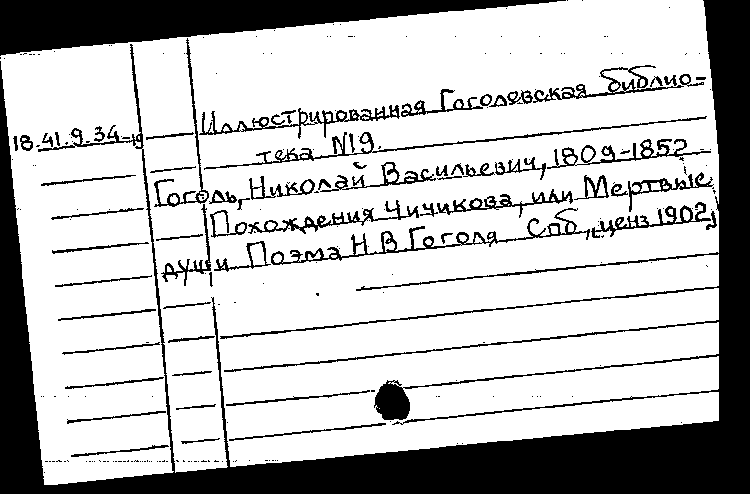 18.41.9.34-19
Иллюстрированная Гоголевская библио-
тека N19.
Гоголь, Николай Васильевич, 1809-1852
Похождения Чичикова, или Мертвые
души Поэма Н.В.Гоголя Спб., [ценз 1902]